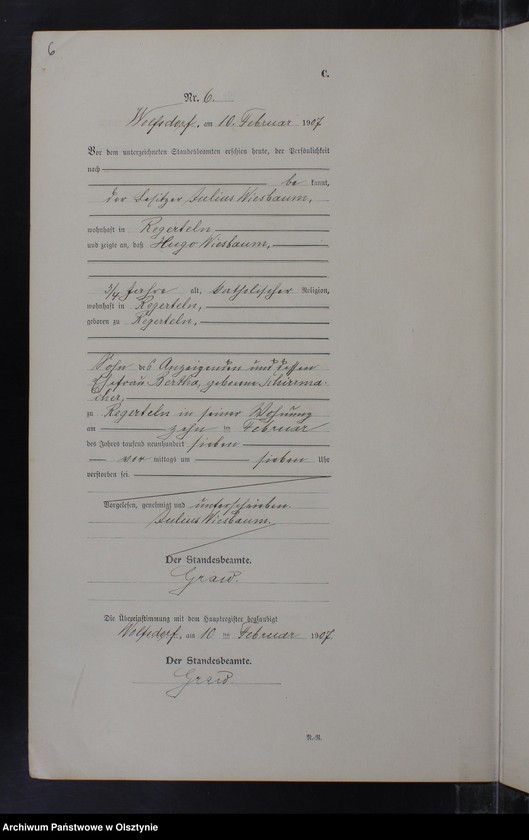 6
C.
Nr. 6.
Wolfsdorf, am 10. Februar 1907
Vor dem unterzeichneten Standesbeamten erschien heute, der Persönlichkeit
nach
be kannt,
der Besitzer Julius Wiesbaum,
wohnhaft in Regerteln
und zeigte an, daß Hugo Wiesbaum,
3/4 Jahre alt, katholischer Religion,
wohnhaft in Regerteln,
geboren zu Regerteln,
Sohn des Anzeigenden und dessen
Ehefrau Bertha, geborene Schirrma-
cher,
zu Regerteln in seiner Wohnung
am zehn ten Februar
des Jahres tausend neunhundert sieben
vor mittags um sieben Uhr
verstorben sei.
Vorgelesen, genehmigt und unterschrieben.
Julius Wiesbaum.
Der Standesbeamte.
Graw.
Die Übereinstimmung mit dem Hauptregister beglaubigt
Wolfsdorf, am 10 ten Februar 1907.
Der Standesbeamte.
Graw.
Archiwum Państwowe w Olsztynie